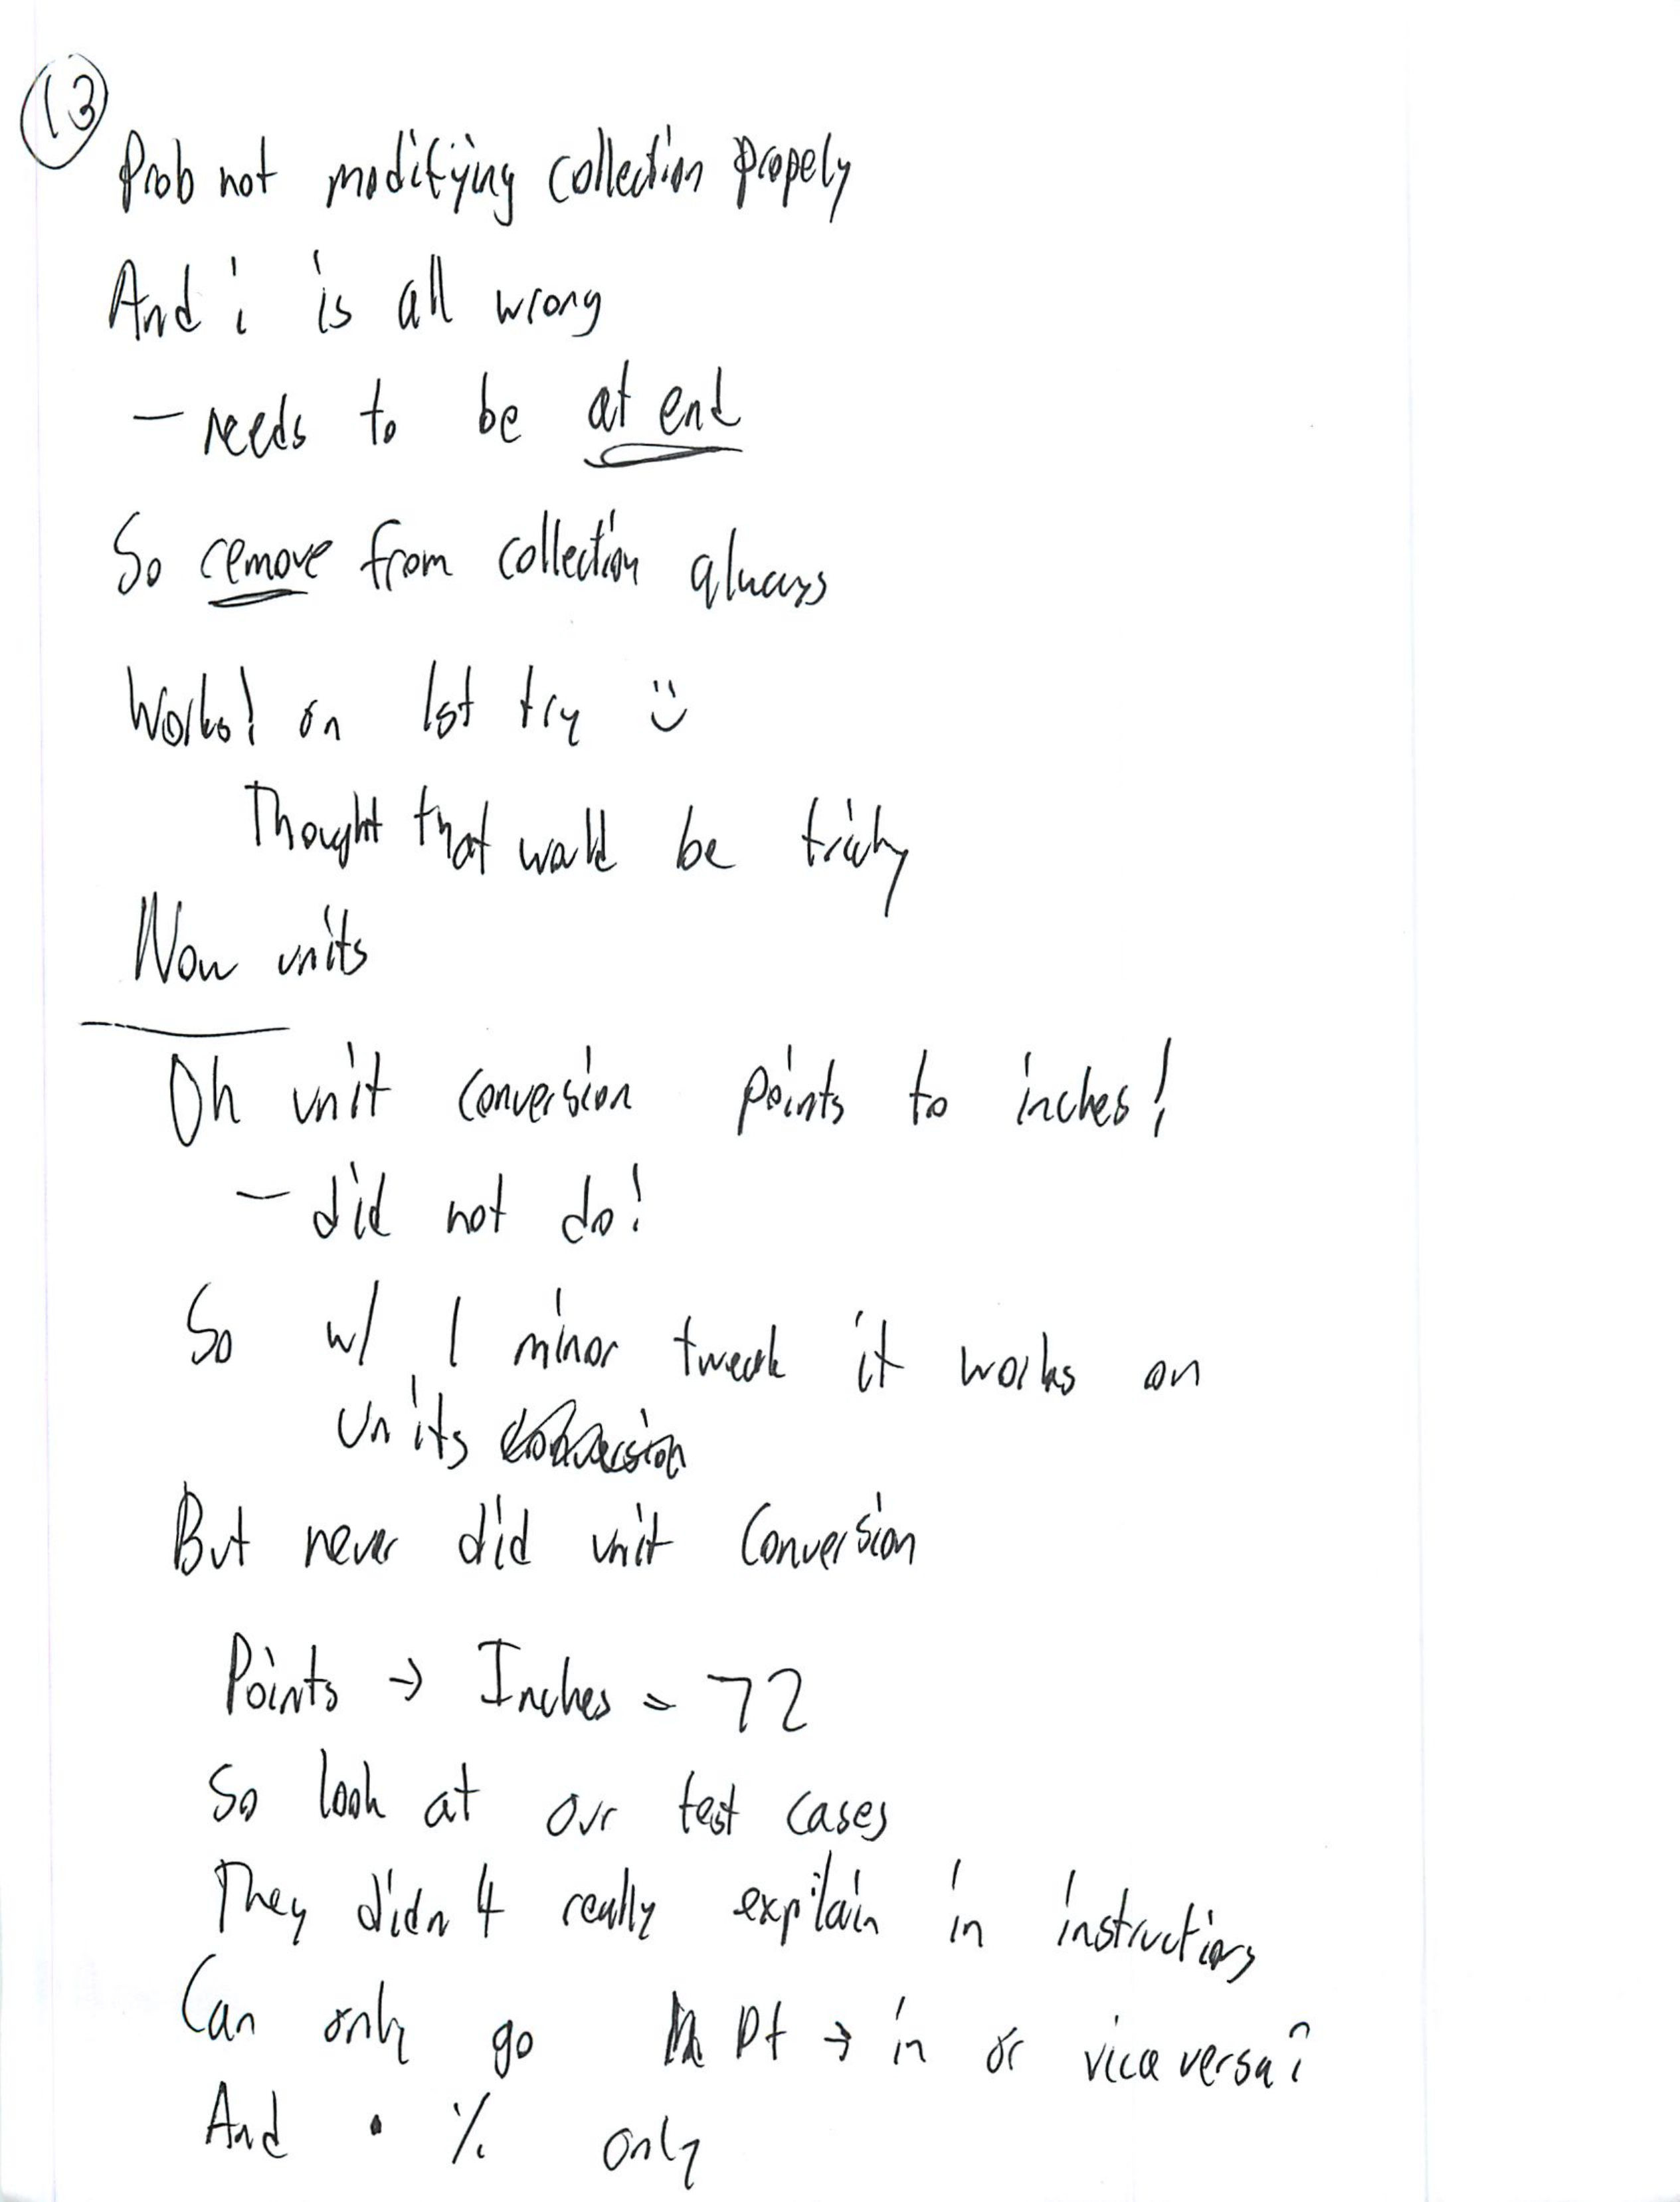 13
Prob not modifying collection propely
And i is all wrong
- needs to be at end
So remove from collection always
Works! on 1st try :)
Thought that would be tricky
Now units
Oh unit conversion points to inches!
- did not do!
So w/ 1 minor tweak it works on
units
But never did unit conversion
Points → Inches = 72
So look at our test cases
They didn't really explain in instructions
Can only go pt → in or vica versa?
And • % only